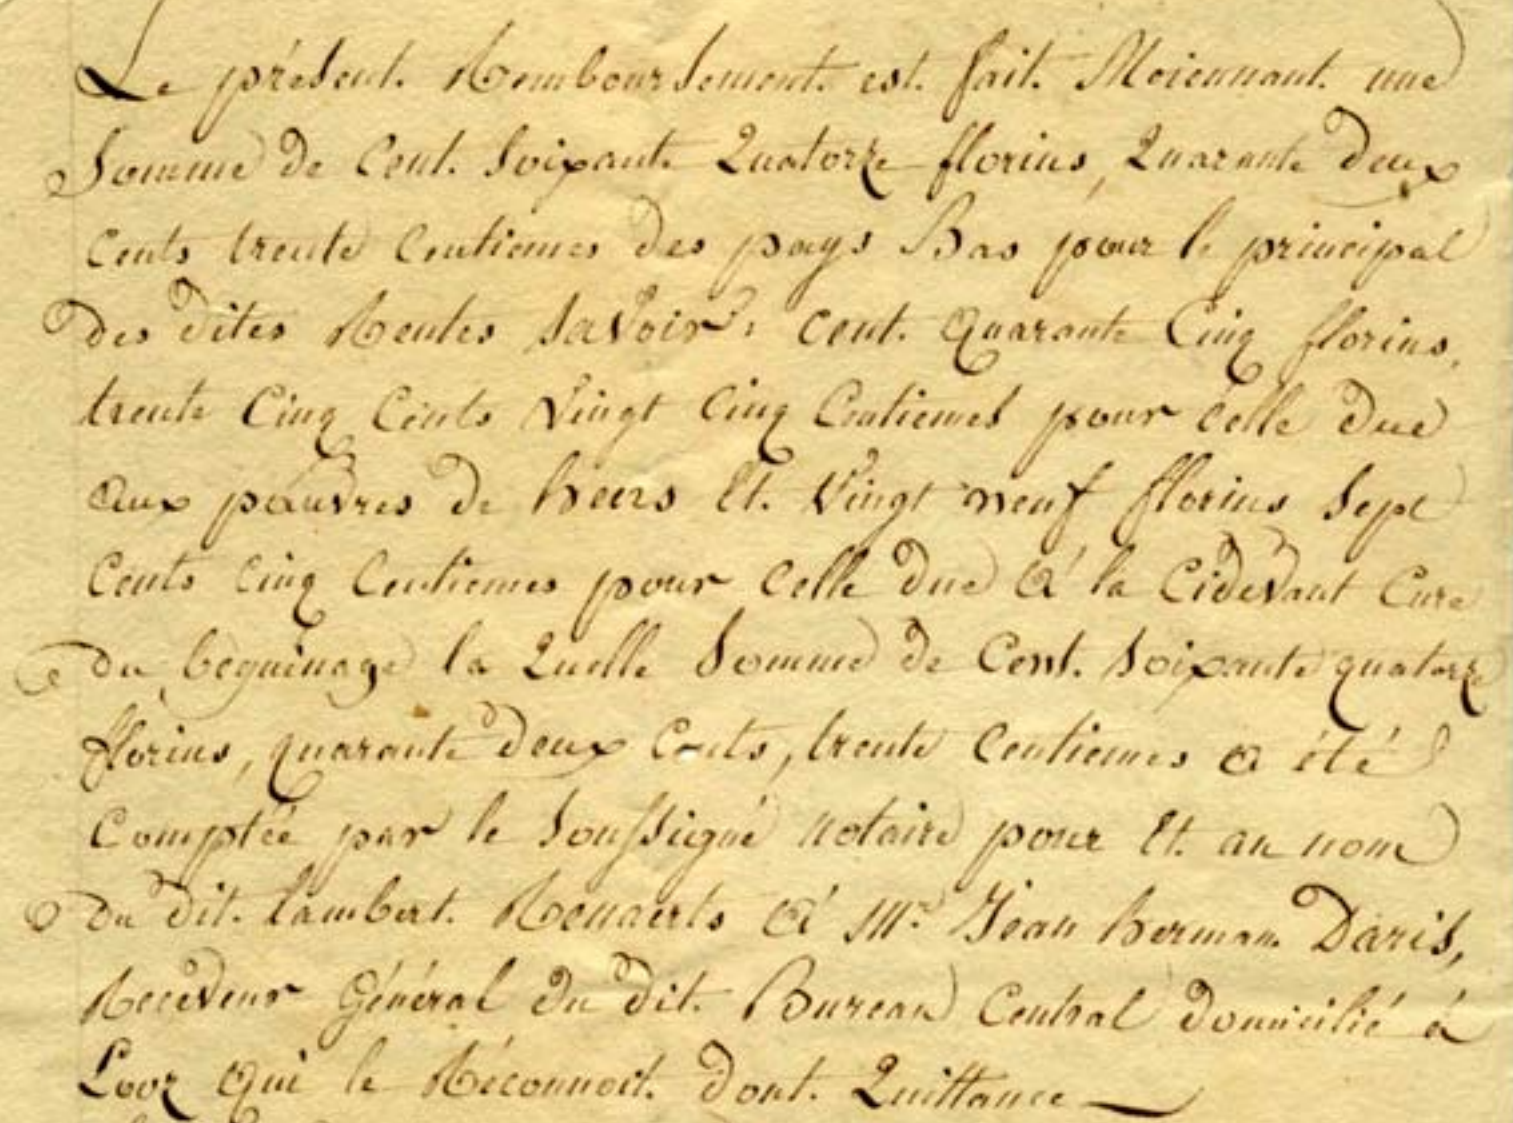 Le présent Remboursement est fait Moiennant une
Somme de Cent Soixante Quatorze florins, Quarante deux
Cents trente Centiemes des pays Bas pour le principal
des dites Rentes Savoir: Cent Quarante Cinq florins,
trente Cinq Cents Vingt Cinq Centiemes pour celle due
aux pauvres de heers Et Vingt neuf florins Sept
Cents Cinq Centiemes pour celle due à la Cidevant Cure
du beguinage la Quelle Somme de Cent Soixante quatorze
florins, quarante deux Cents, trente Centiemes a été
Comptée par le Soussigné notaire pour Et au nom
du dit lambert Renaerts à Mr Jean herman Daris,
Receveur Général du dit Bureau Central domicilié à
Looz Qui le Réconnoit dont Quittance